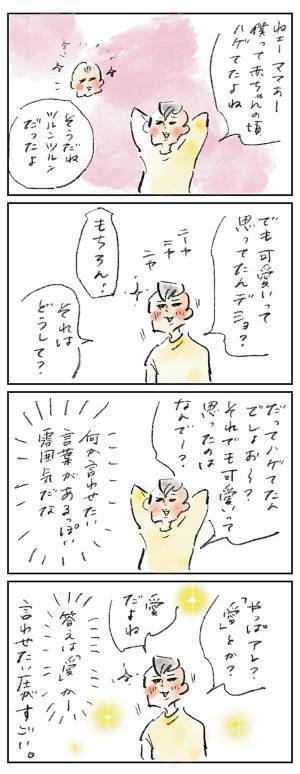 ねェーママぁー
僕って赤ちゃんの頃
ハゲてたよね
そうだね
ツルンツルン
だったよ
でも可愛いって
思ってたんデショ?
ニーヤ
ニヤ
ニヤ
もちろん!
それは
どうして?
だってハゲてたん
でしょお〜?
それでも可愛いって
思ったのは
なんでー?
何か言わせたい
言葉があるっぽい
雰囲気だな
やっぱアレ?
「愛」とか?
愛
だよね
答えは愛かー
言わせたい圧がすごい。